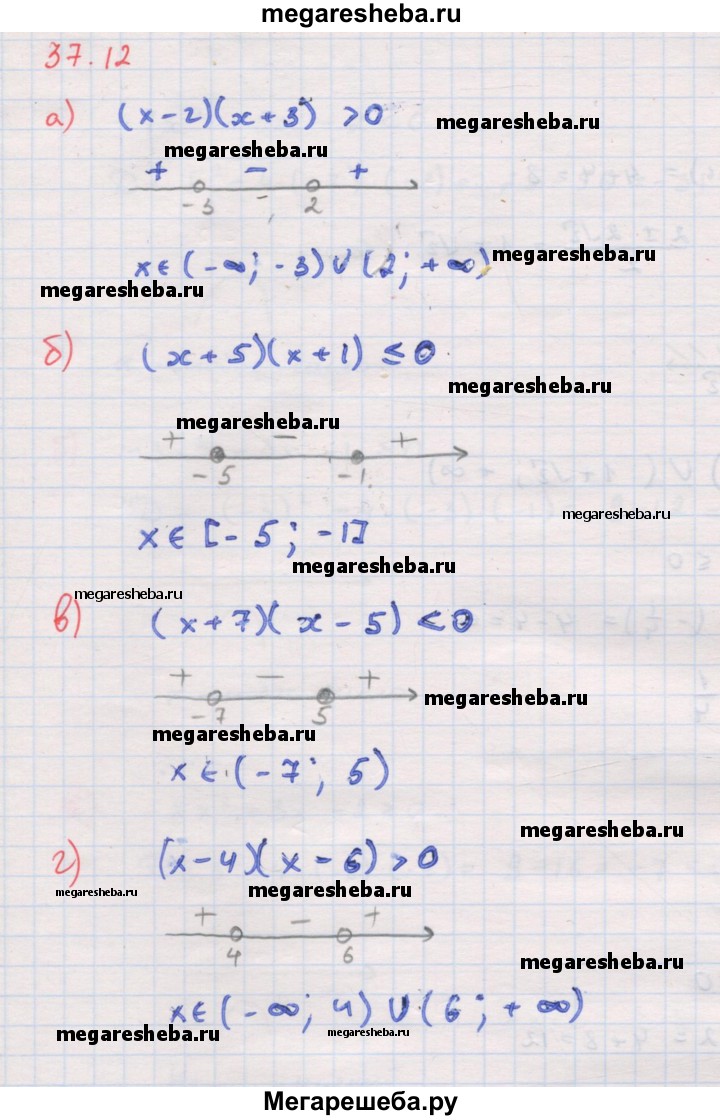 megaresheba.ru
37.12
а) (x-2)(x+3) >0
megaresheba.ru
megaresheba.ru
+ - +
-3 2
megaresheba.ru
x∈(-∞; -3)∪(2; +∞)
megaresheba.ru
б) (x+5)(x+1) ≤0
megaresheba.ru
megaresheba.ru
+ - +
-5 -1
megaresheba.ru
x∈[-5; -1]
megaresheba.ru
megaresheba.ru
в) (x+7)(x-5) <0
+ - +
-7 5
megaresheba.ru
megaresheba.ru
x∈(-7; 5)
megaresheba.ru
г) (x-4)(x-6) >0
megaresheba.ru
megaresheba.ru
+ - +
4 6
megaresheba.ru
x∈(-∞; 4)∪(6; +∞)
megaresheba.ru
megaresheba.ru
Мегарешеба.ру